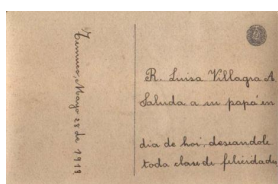 Temuco, Mayo 28 de 1912
R. Luisa Villagra A
Saluda a su papá en
dia de hoi, deseandole
toda clase de felicidades